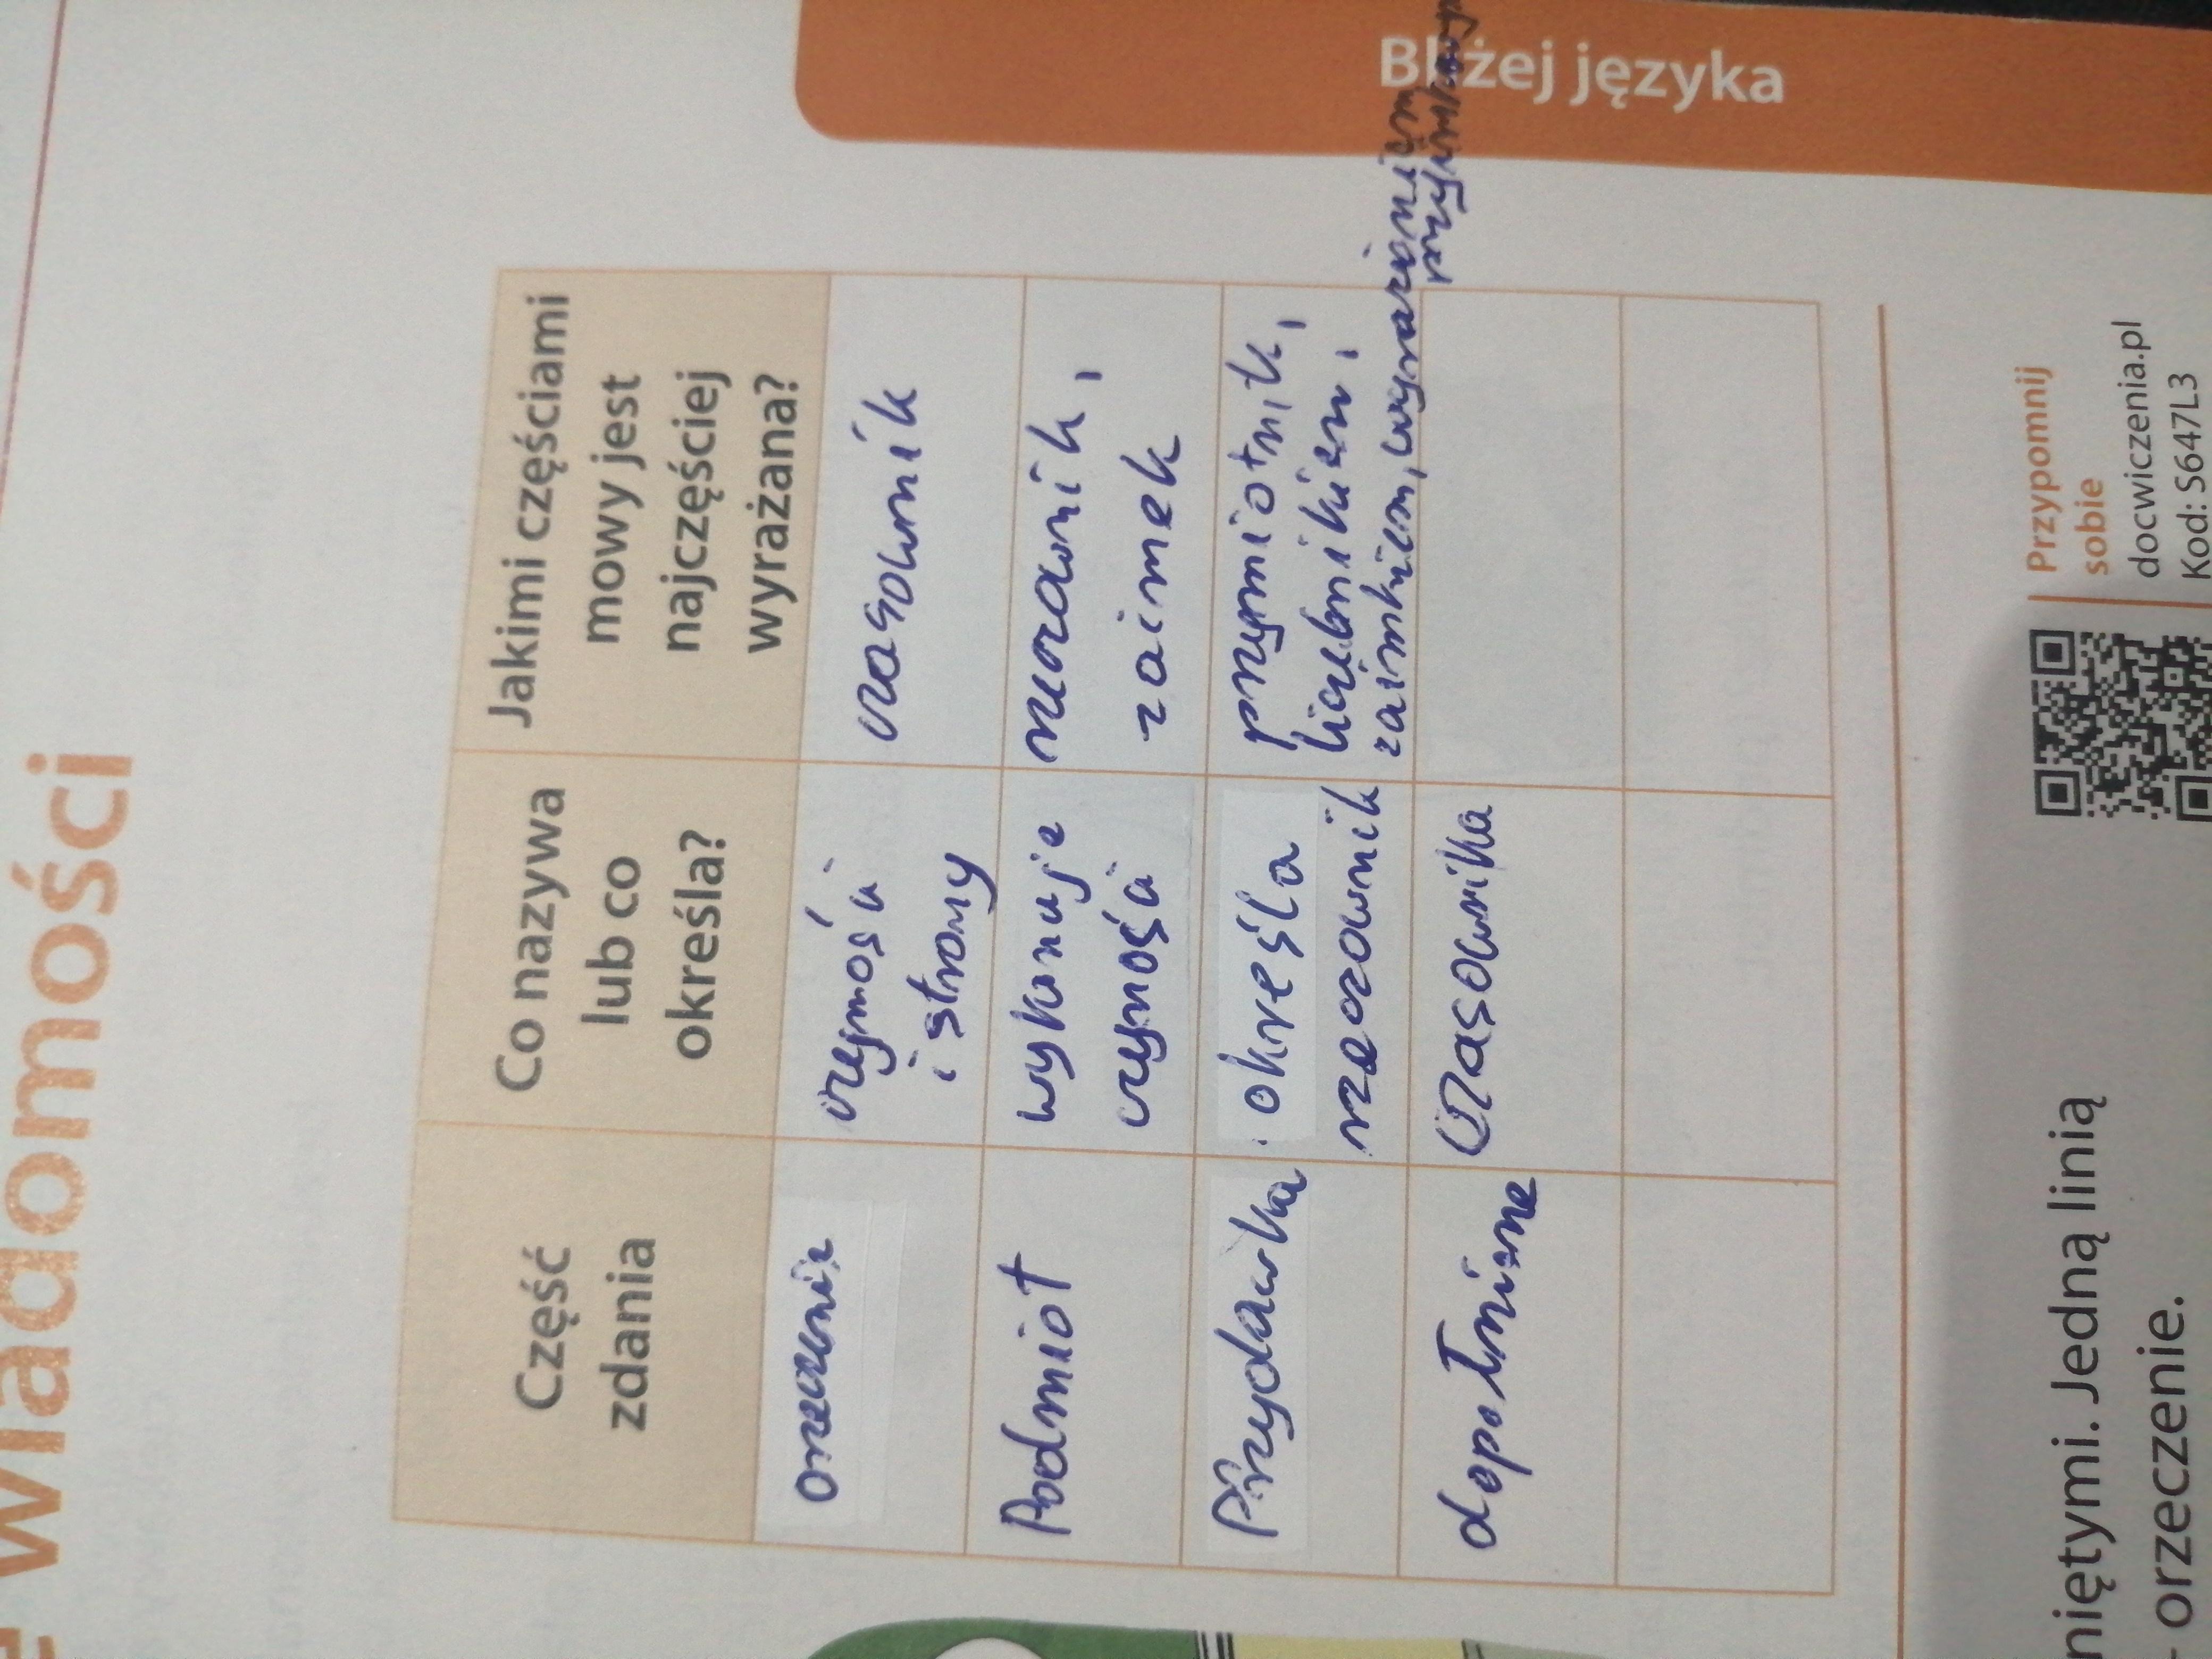 e wiadomości
Bliżej języka
Część
zdania
Co nazywa
lub co
określa?
Jakimi częściami
mowy jest
najczęściej
wyrażana?
orzeczenie
czynność
i strony
czasownik
Podmiot
wykonuje
czynność
rzeczownik,
zaimek
Przydawka
określa
rzeczownik
przymiotnik,
liczebnikiem,
zaimkiem, wyrażeniem
przyimkowym
dopołnienie
czasownika
niętymi. Jedną linią
- orzeczenie.
Przypomnij
sobie
docwiczenia.pl
Kod: S647L3